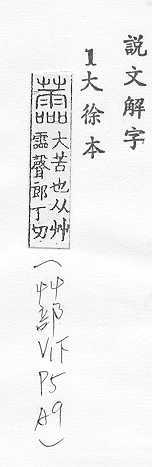 說文解字
1大徐本
蘦
大苦也从艸
霝聲郎丁切
(艸部 V1下 P5 A9)